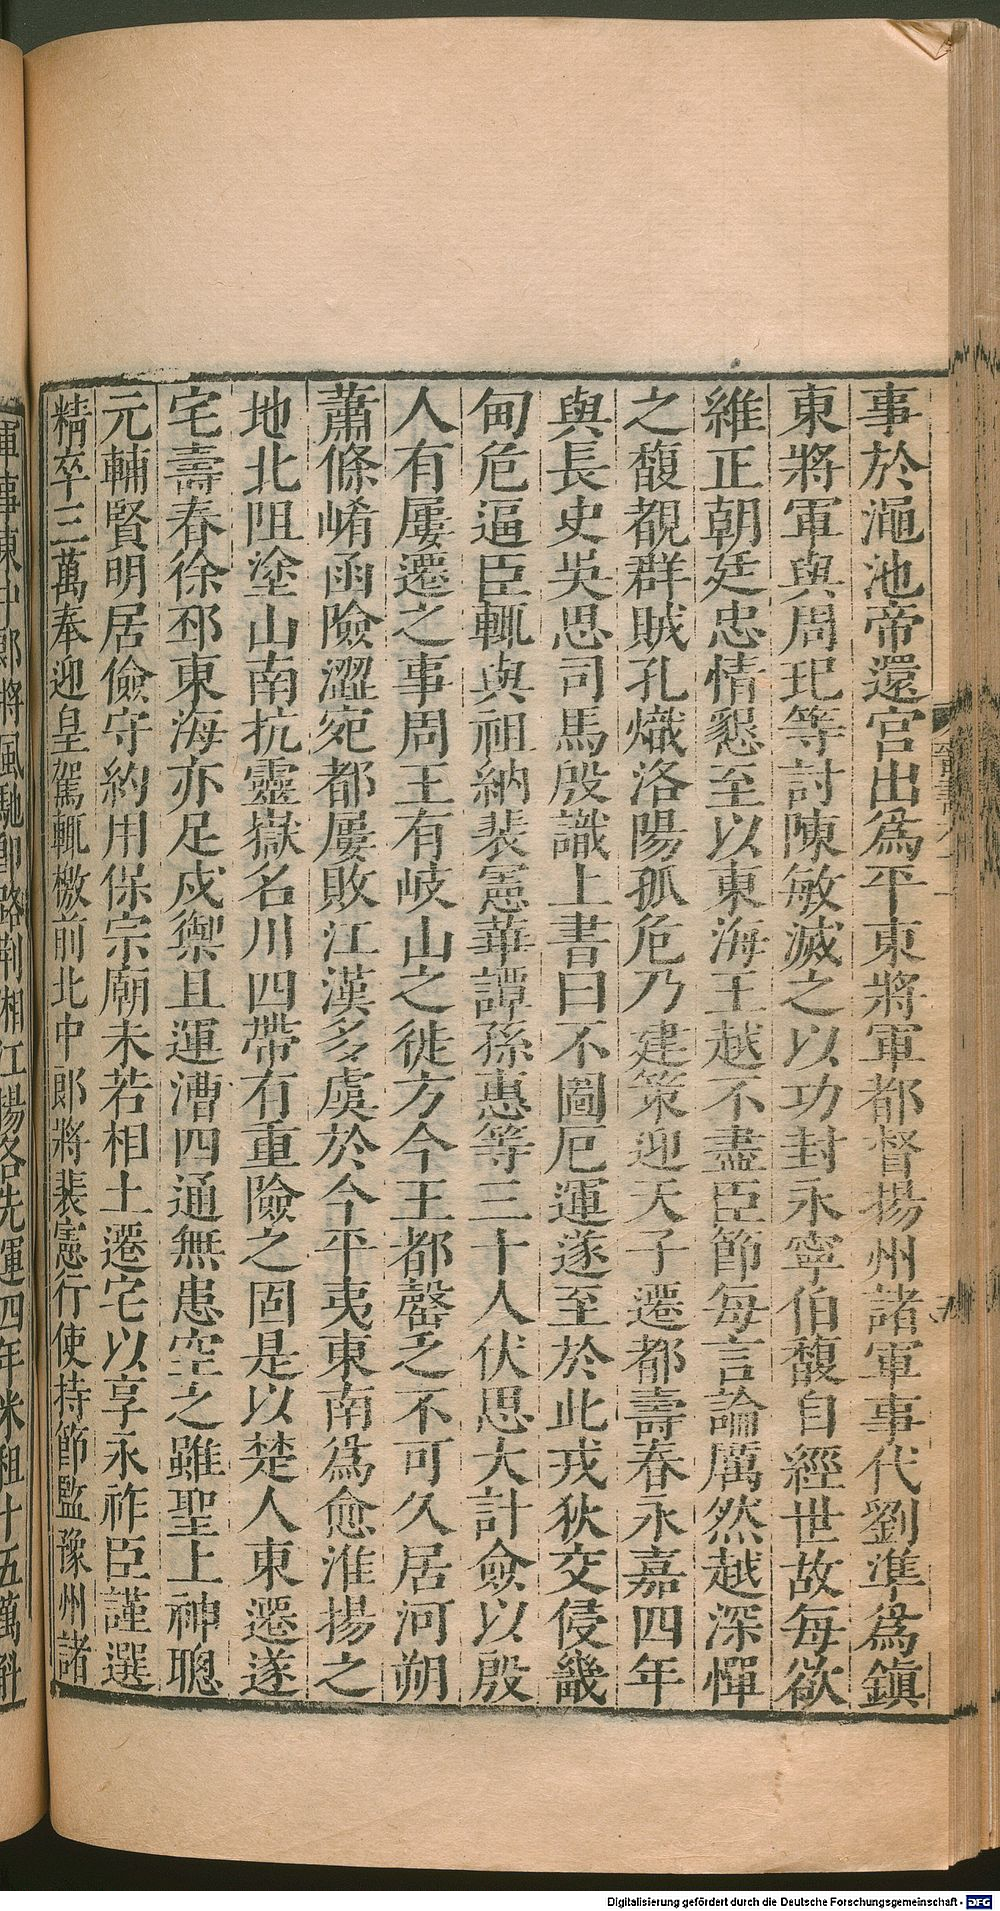 事於澠池帝還宮出爲平東將軍都督揚州諸軍事代劉準爲鎮
東將軍與周玘等討陳敏滅之以功封永寧伯馥自經世故每欲
維正朝廷忠情懇至以東海王越不盡臣節每言論厲然越深憚
之馥覩群賊孔熾洛陽孤危乃建策迎天子遷都壽春永嘉四年
與長史吳思司馬殷識上書曰不圖厄運遂至於此戎狄交侵畿
甸危逼臣輒與祖納裴憲華譚孫惠等三十人伏思大計僉以殷
人有屢遷之事周王有岐山之徙方今王都罄乏不可久居河朔
蕭條崤函險澀宛都屢敗江漢多虞於今平夷東南爲愈淮揚之
地北阻塗山南抗靈嶽名川四帶有重險之固是以楚人東遷遂
宅壽春徐邳東海亦足戍禦且運漕四通無患空乏雖聖上神聰
元輔賢明居儉守約用保宗廟未若相土遷宅以享永祚臣謹選
精卒三萬奉迎皇駕輒檄前北中郎將裴憲行使持節監豫州諸
軍事東中郎將風馳即路荆湘江揚各先運四年米租十五萬斛
Digitalisierung gefördert durch die Deutsche Forschungsgemeinschaft - DFG